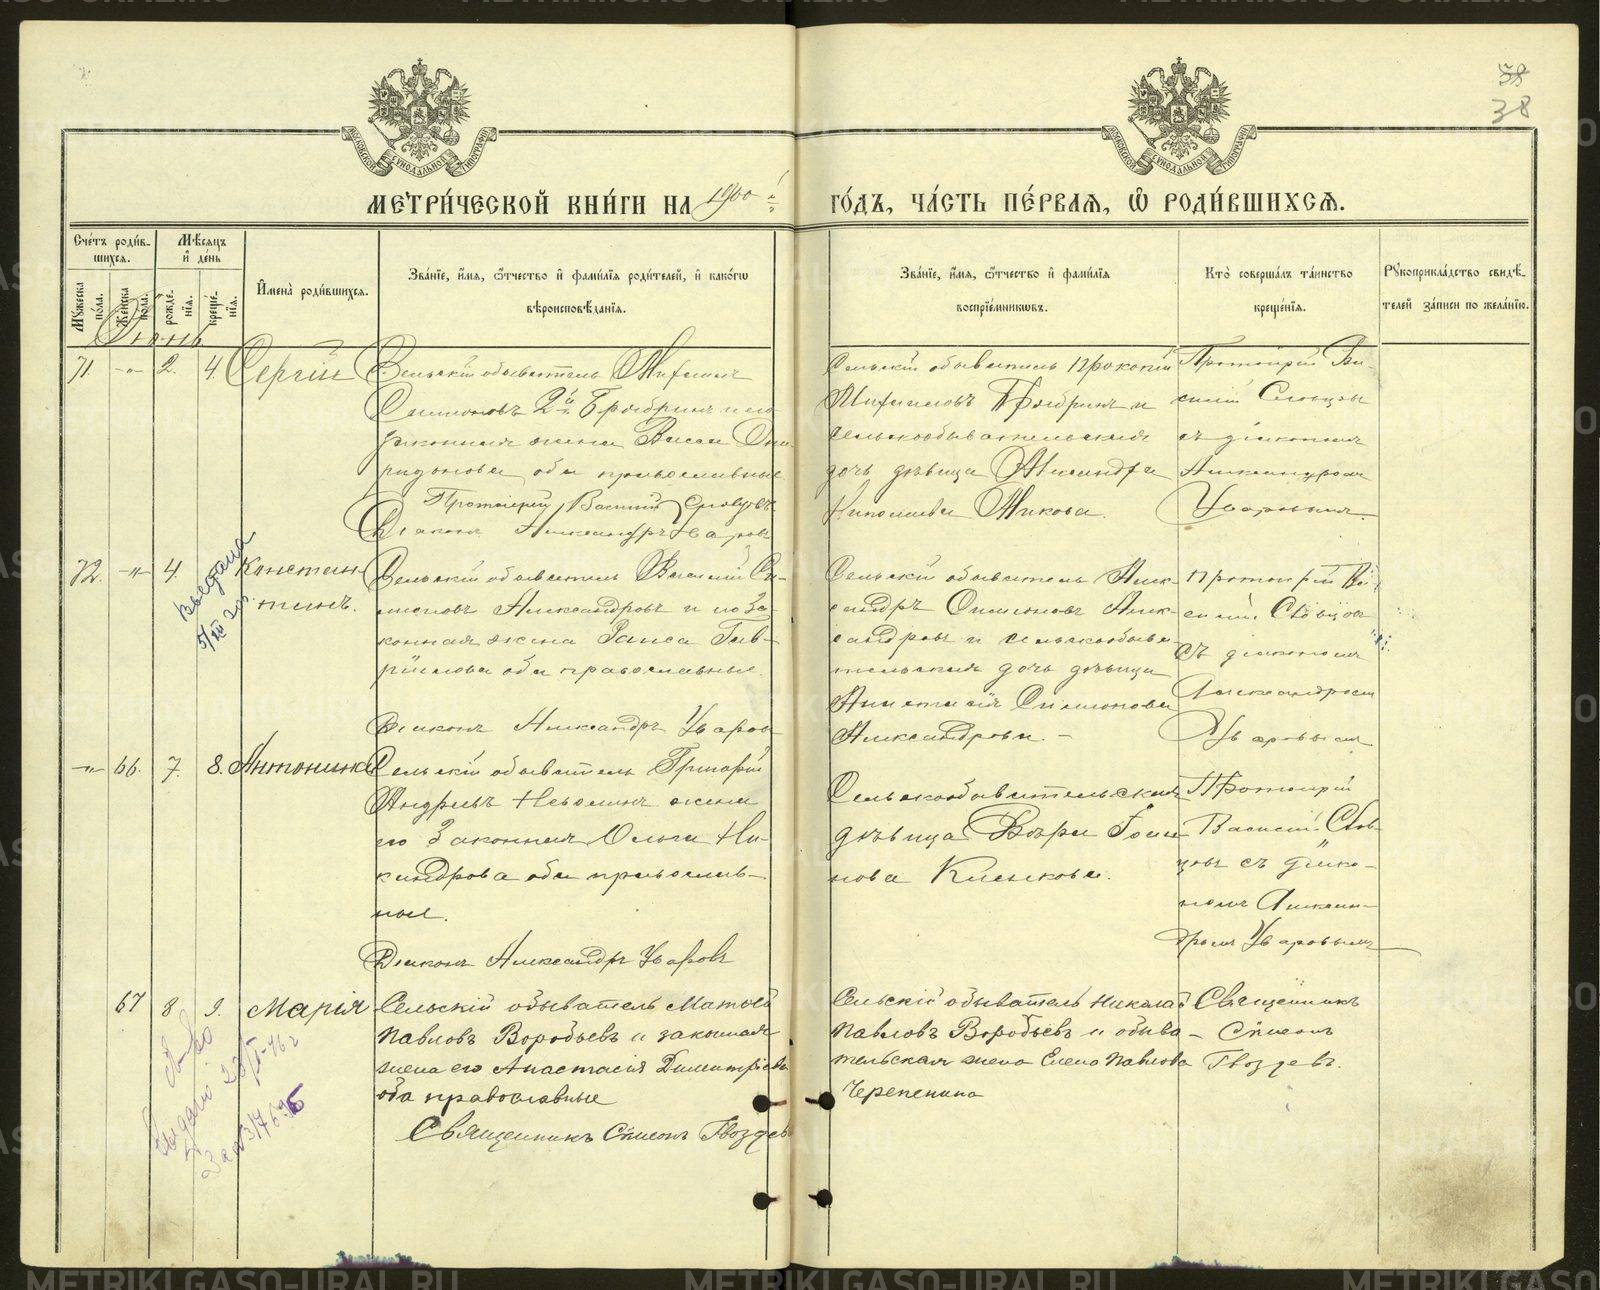 38
38
МОСКОВСКОЙ СѴНОДАЛЬНОЙ ТИПОГРАФІИ
МОСКОВСКОЙ СѴНОДАЛЬНОЙ ТИПОГРАФІИ
МЕТРИ́ЧЕСКОЙ КНИ́ГИ НА 1900 й
ГО́ДЪ, ЧА́СТЬ ПЕ́РВАѦ, Ѡ҆ РОДИ́ВШИХСѦ.
Сче́тъ роди́в-
шихсѧ.
Мꙋ́жеска по́ла.
Же́нска по́ла.
Мѣ́сѧцъ
и҆ де́нь
рожде-
нїѧ.
креще́-
нїѧ.
И҆мена̀ роди́вшихсѧ.
Зва́нїе, и҆́мѧ, ѻ҆́тчество и҆ фами́лїѧ роди́телей, и҆ како́гѡ
вѣроисповѣ́данїѧ.
Зва́нїе, и҆́мѧ, ѻ҆́тчество и҆ фами́лїѧ
воспрїе́мникѡвъ.
Кто̀ соверша́лъ та́инство
креще́нїѧ.
Рꙋкоприкла́дство свидѣ́-
телей за́писи по жела́нїю.
Іюнь
71. -"- 2. 4 Сергій
Сельскій обыватель Михаилъ
Симеоновъ 2й и его
законная жена Васса Спи-
ридонова оба православные
Протоіерей Василій Словцовъ
Діаконъ Александръ Уваровъ
Сельскій обыватель Прокопій
Михаиловъ и
сельскообывательская
дочь дѣвица Александра
Николаева Жикова.
Протоіерей Ва-
силій Словцовъ
съ діакономъ
Александромъ
Уваровымъ.
72. -"- 4. Констан-
тинъ.
выдана
5/XII 20
Сельскій обыватель Василій Си-
меоновъ Александровъ и его за-
конная жена Раиса Гав-
рііилова оба православные.
Діаконъ Александръ Уваровъ
Сельскій обыватель Алек-
сандръ Симеоновъ Алек-
сандровъ и сельскообыва-
тельская дочь дѣвица
Анастасія Симеонова
Александрова. -
Протоіерей Ва-
силій Словцовъ
съ діакономъ
Александромъ
Уваровымъ
-"- 66. 7. 8. Антонина
Сельскій обыватель Григорій
Андреевъ жена
его законная Ольга Ни-
кандрова оба православ-
ные.
Діаконъ Александръ Уваровъ
Сельскообывательская
дѣвица Іоан-
нова
Протоіерей
Василій Слов-
цовъ съ діако-
номъ Алексан-
дромъ Уваровымъ
67 8 9. Марія
Сельскій обыватель Матвей
Павловъ Воробьевъ и законная
жена его Анастасія Димитріева
оба православные
Священникъ Симеонъ Гвоздевъ
Сельскій обыватель Николай
Павловъ Воробьевъ и обыва-
тельская жена Елена Павлова
Черепенина
Священникъ
Симеонъ
Гвоздевъ.
METRIKI.GASO-URAL.RU
METRIKI.GASO-URAL.RU